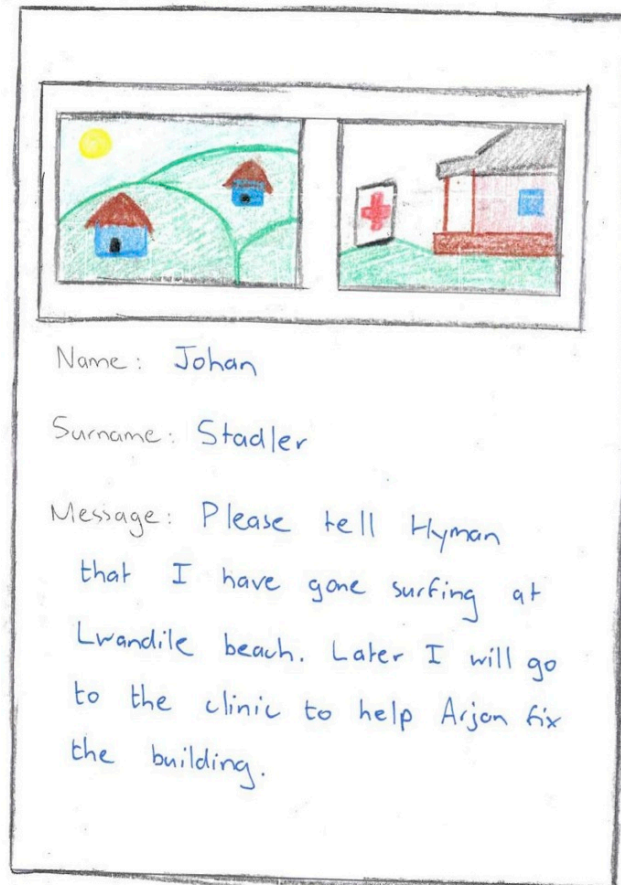 Name: Johan
Surname: Stadler
Message: Please tell Hyman
that I have gone surfing at
Lwandile beach. Later I will go
to the clinic to help Arjan fix
the building.